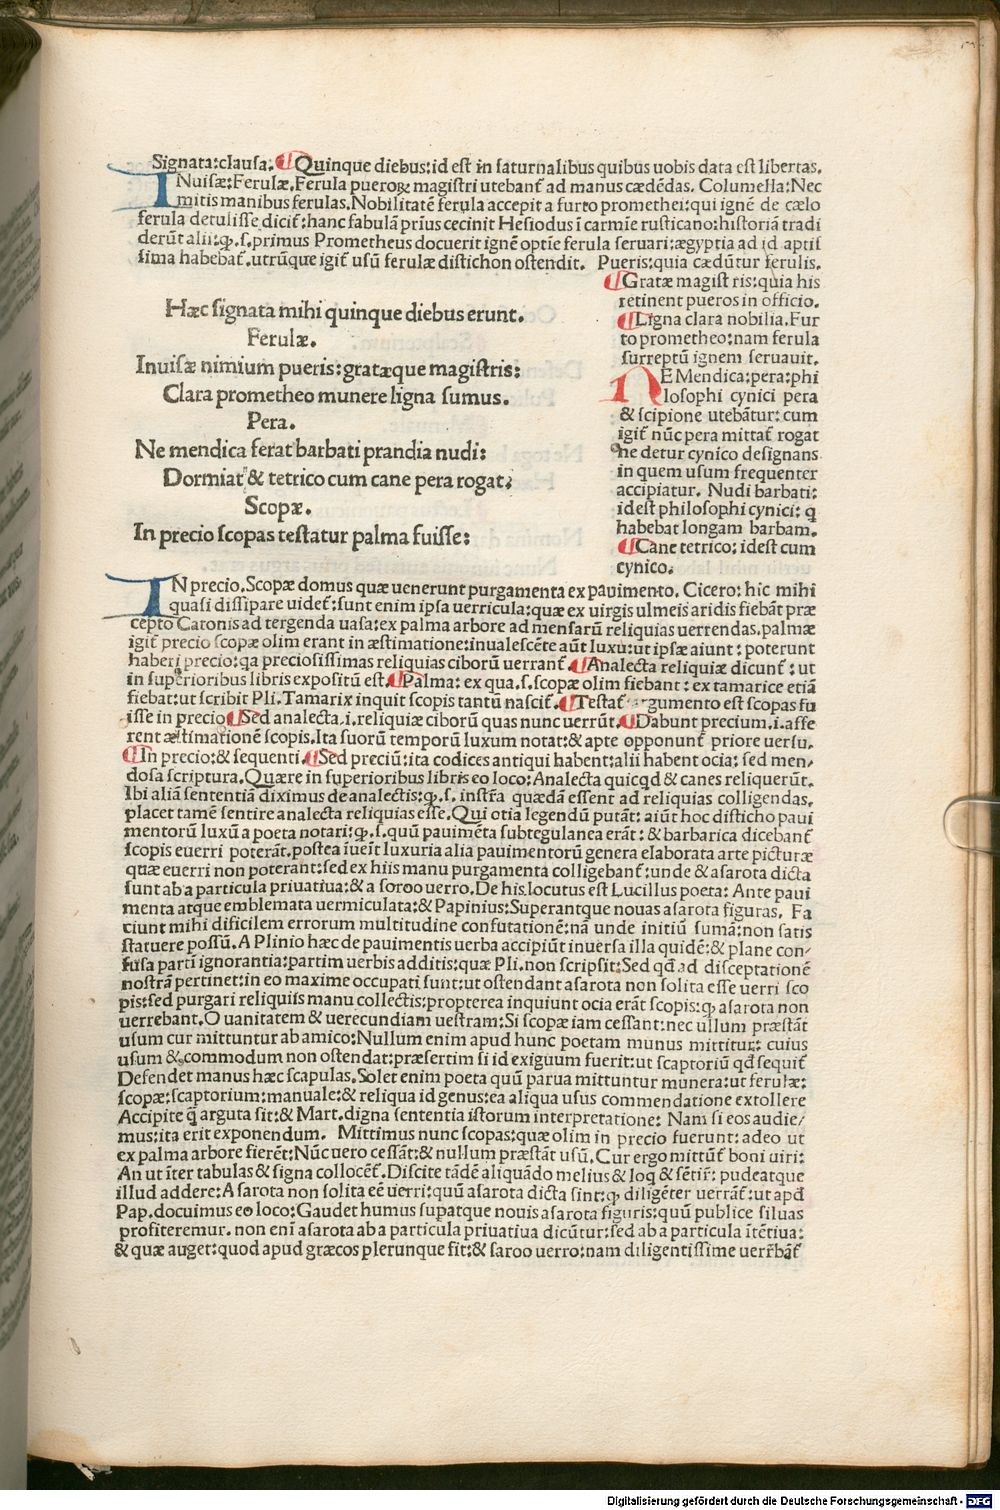 Signata:clausa.⸿Quinque diebus:id est in saturnalibus quibus uobis data est libertas.
INuisæ:Ferulæ.Ferula pueroꝝ magistri utebant̃ ad manus cædẽdas. Columella:Nec
mitis manibus ferulas.Nobilitatẽ ferula accepit a furto promethei:qui ignẽ de cælo
ferula detulisse dicit̃:hanc fabulã prius cecinit Hesiodus ĩ carmĩe rusticano:historiã tradi
derũt alii:ꝙ.s.primus Prometheus docuerit ignẽ optĩe ferula seruari:ægyptia ad id aptis
sima habebat̃.utrũque igit̃ usũ ferulæ distichon ostendit. Pueris:quia cædũtur ferulis.
⸿Gratæ magistris:quia his
retinent pueros in officio.
⸿Ligna clara nobilia.Fur
to prometheo:nam ferula
surreptũ ignem seruauit.
Hæc signata mihi quinque diebus erunt.
Ferulæ.
Inuisæ nimium pueris:gratæque magistris:
Clara prometheo munere ligna sumus.
Pera.
Ne mendica ferat barbati prandia nudi:
Dormiat & tetrico cum cane pera rogat.
Scopæ.
In precio scopas testatur palma fuisse:
NE Mendica:pera:phi
losophi cynici pera
& scipione utebãtur:cum
igit̃ nũc pera mittat̃ rogat
ne detur cynico designans
in quem usum frequenter
accipiatur. Nudi barbati:
idest philosophi cynici: q
habebat longam barbam.
⸿Cane tetrico:idest cum
cynico.
IN precio.Scopæ domus quæ uenerunt purgamenta ex pauimento. Cicero:hic mihi
quasi dissipare uidet̃:sunt enim ipsa uerricula:quæ ex uirgis ulmeis aridis fiebãt præ
cepto Catonis ad tergenda uasa:ex palma arbore ad mensarũ reliquias uerrendas.palmæ
igit̃ precio scopæ olim erant in æstimatione:inualescẽte aũt luxu:ut ipsæ aiunt:poterunt
haberi precio:qa preciosissimas reliquias ciborũ uerrant̃.⸿Analecta reliquiæ dicunt̃:ut
in superioribus libris expositũ est.⸿Palma:ex qua.s.scopæ olim fiebant:ex tamarice etiã
fiebat:ut scribit Pli.Tamarix inquit scopis tantũ nascit̃.⸿Testat̃ argumento est scopas fu
isse in precio⸿Sed analecta.i.reliquiæ ciborũ quas nunc uerrũt.⸿Dabunt precium.i.affe
rent æstimationẽ scopis.Ita suorũ temporũ luxum notat:& apte opponunt̃ priore uersu.
⸿In precio:& sequenti.⸿Sed preciũ:ita codices antiqui habent:alii habent ocia: sed men/
dosa scriptura.Quære in superioribus libris eo loco:Analecta quicqd & canes reliquerũt.
Ibi aliã sententiã diximus de analectis:ꝙ.s. instr̃a quædã essent ad reliquias colligendas.
placet tamẽ sentire analecta reliquias esse.Qui otia legendũ putãt:aiũt hoc disticho paui
mentorũ luxũ a poeta notari:ꝙ.s.quũ pauimẽta subtegulanea erãt:& barbarica dicebant̃
scopis euerri poterãt.postea ĩuẽit luxuria alia pauimentorũ genera elaborata arte picturæ
quæ euerri non poterant:sed ex hiis manu purgamenta colligebant̃:unde & asarota dicta
sunt ab a particula priuatiua:& a soroo uerro.De his.locutus est Lucillus poeta:Ante paui
menta atque emblemata uermiculata:& Papinius:Superantque nouas asarota figuras. Fa
ciunt mihi dificilem errorum multitudine confutationẽ:nã unde initiũ sumã:non satis
statuere possũ.A Plinio hæc de pauimentis uerba accipiũt inuersa illa quidẽ:& plane con/
fusa parti ignorantia:partim uerbis additis:quæ Pli.non scripsit:Sed qđ ad disceptationẽ
nostrã pertinet:in eo maxime occupati sunt:ut ostendant asarota non solita esse uerri sco
pis:sed purgari reliquiis manu collectis:propterea inquiunt ocia erãt scopis:ꝙ asarota non
uerrebant.O uanitatem & uerecundiam uestram:Si scopæ iam cessant:nec ullum præstãt
usum cur mittuntur ab amico:Nullum enim apud hunc poetam munus mittitur: cuius
usum & commodum non ostendat:præsertim si id exiguum fuerit:ut scaptoriũ qđ sequit̃
Defendet manus hæc scapulas.Solet enim poeta quũ parua mittuntur munera:ut ferulæ:
scopæ:scaptorium:manuale:& reliqua id genus:ea aliqua usus commendatione extollere
Accipite q̃ arguta sit:& Mart.digna sententia istorum interpretatione: Nam si eos audie/
mus:ita erit exponendum. Mittimus nunc scopas:quæ olim in precio fuerunt:adeo ut
ex palma arbore fierẽt:Nũc uero cessãt:& nullum præstãt usũ.Cur ergo mittũt̃ boni uiri:
An ut ĩter tabulas & signa collocẽt̃.Discite tãdẽ aliquãdo melius & loq̃ & sẽtir̃:pudeatque
illud addere:Asarota non solita eẽ uerri:quũ asarota dicta sint:ꝙ diligẽter uerrãt̃:ut apđ
Pap.docuimus eo loco:Gaudet humus supatque nouis asarota figuris:quũ publice siluas
profiteremur. non enĩ asarota ab a particula priuatiua dicũtur:sed ab a particula ĩtẽtiua:
& quæ auget:quod apud græcos plerunque fit:& saroo uerro:nam diligentissime uerr̃bãt̃
Digitalisierung gefördert durch die Deutsche Forschungsgemeinschaft - DFG